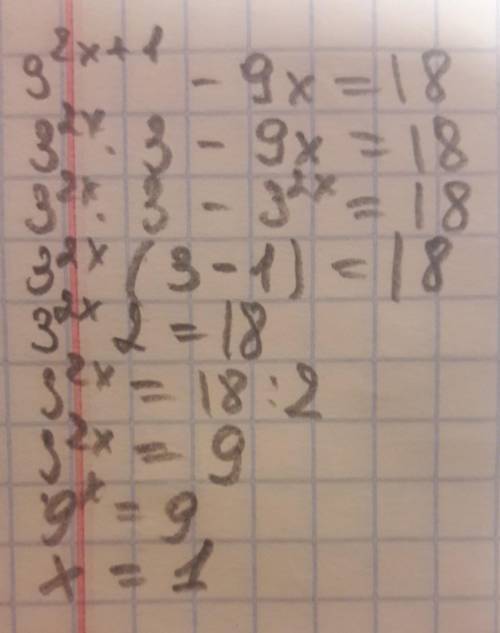 3^{2x+1} - 9x = 18
3^{2x} · 3 - 9x = 18
3^{2x} · 3 - 3^{2x} = 18
3^{2x} (3 - 1) = 18
3^{2x} 2 = 18
3^{2x} = 18 : 2
3^{2x} = 9
9^x = 9
x = 1